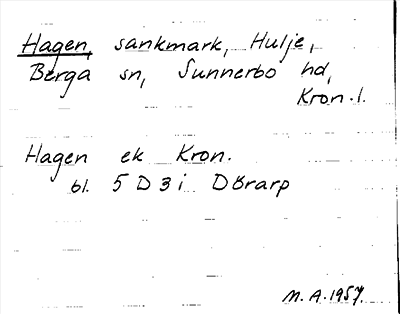 Hagen, sankmark, Hulje,
Berga sn, Sunnerbo hd,
Kron.l.
Hagen ek Kron.
bl. 5 D 3 i Dörarp
M.A. 1957.